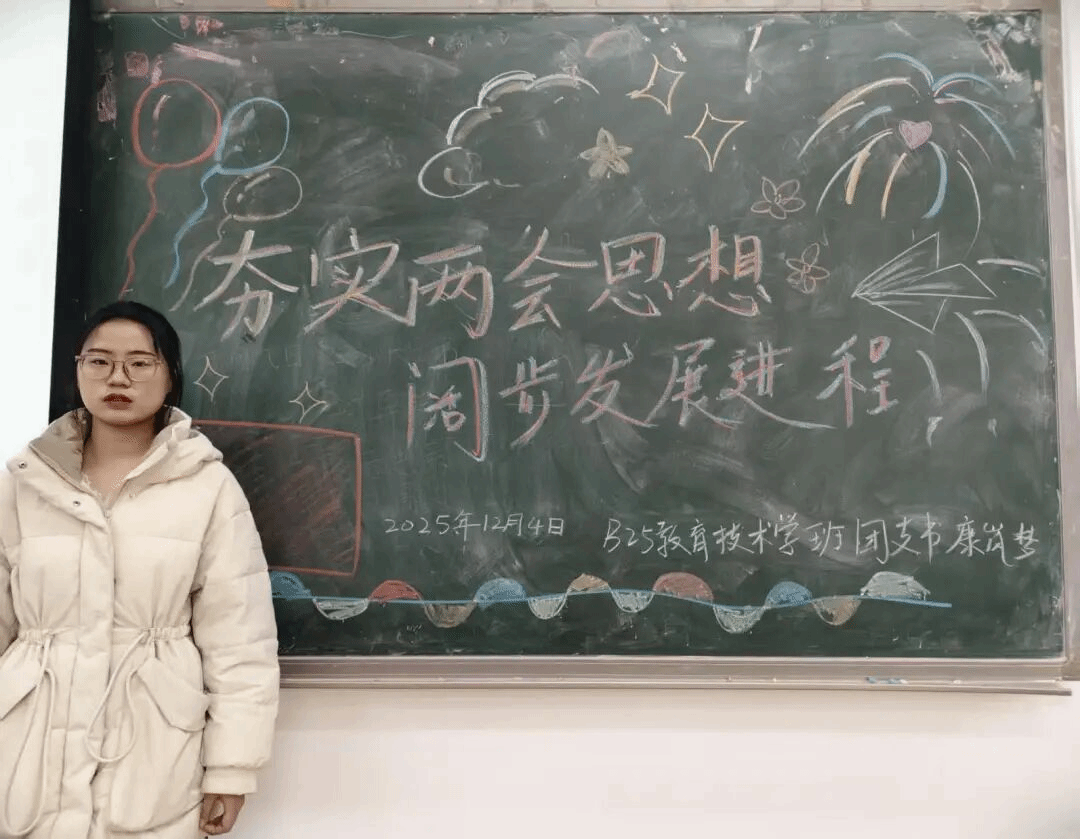 夯实两会思想
阔步发展进程
2025年12月4日 B25教育技术学班团支书康筑梦